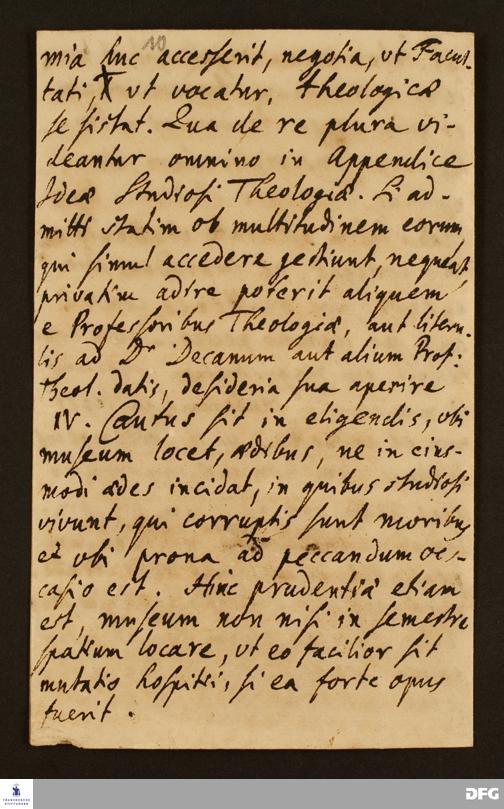 10
mia huc accesserit, negotia, vt Facul-
tati, vt vocatur, theologicæ
se sistat. Qua de re plura vi-
deantur omnino in Appendice
Ideæ Studiosi Theologiæ. Si ad-
mitti statim ob multitudinem eorum
qui simul accedere gestiunt, nequeat,
privatim adire poterit aliquem
e Professoribus Theologiæ, aut literu-
lis ad Dr Decanum aut alium Prof:
Theol. datis, desideria sua aperire
IV. Cautus sit in eligendis, vbi
museum locet, ædibus, ne in eius-
modi ædes incidat, in quibus studiosi
vivunt, qui corruptis sunt moribus
et vbi prona ad peccandum oc-
casio est. Hinc prudentiæ etiam
est, museum non nisi in semestre
spatium locare, vt eo facilior sit
mutatio hospitii, si ea forte opus
fuerit.
FRANCKESCHE
STIFTUNGEN
DFG